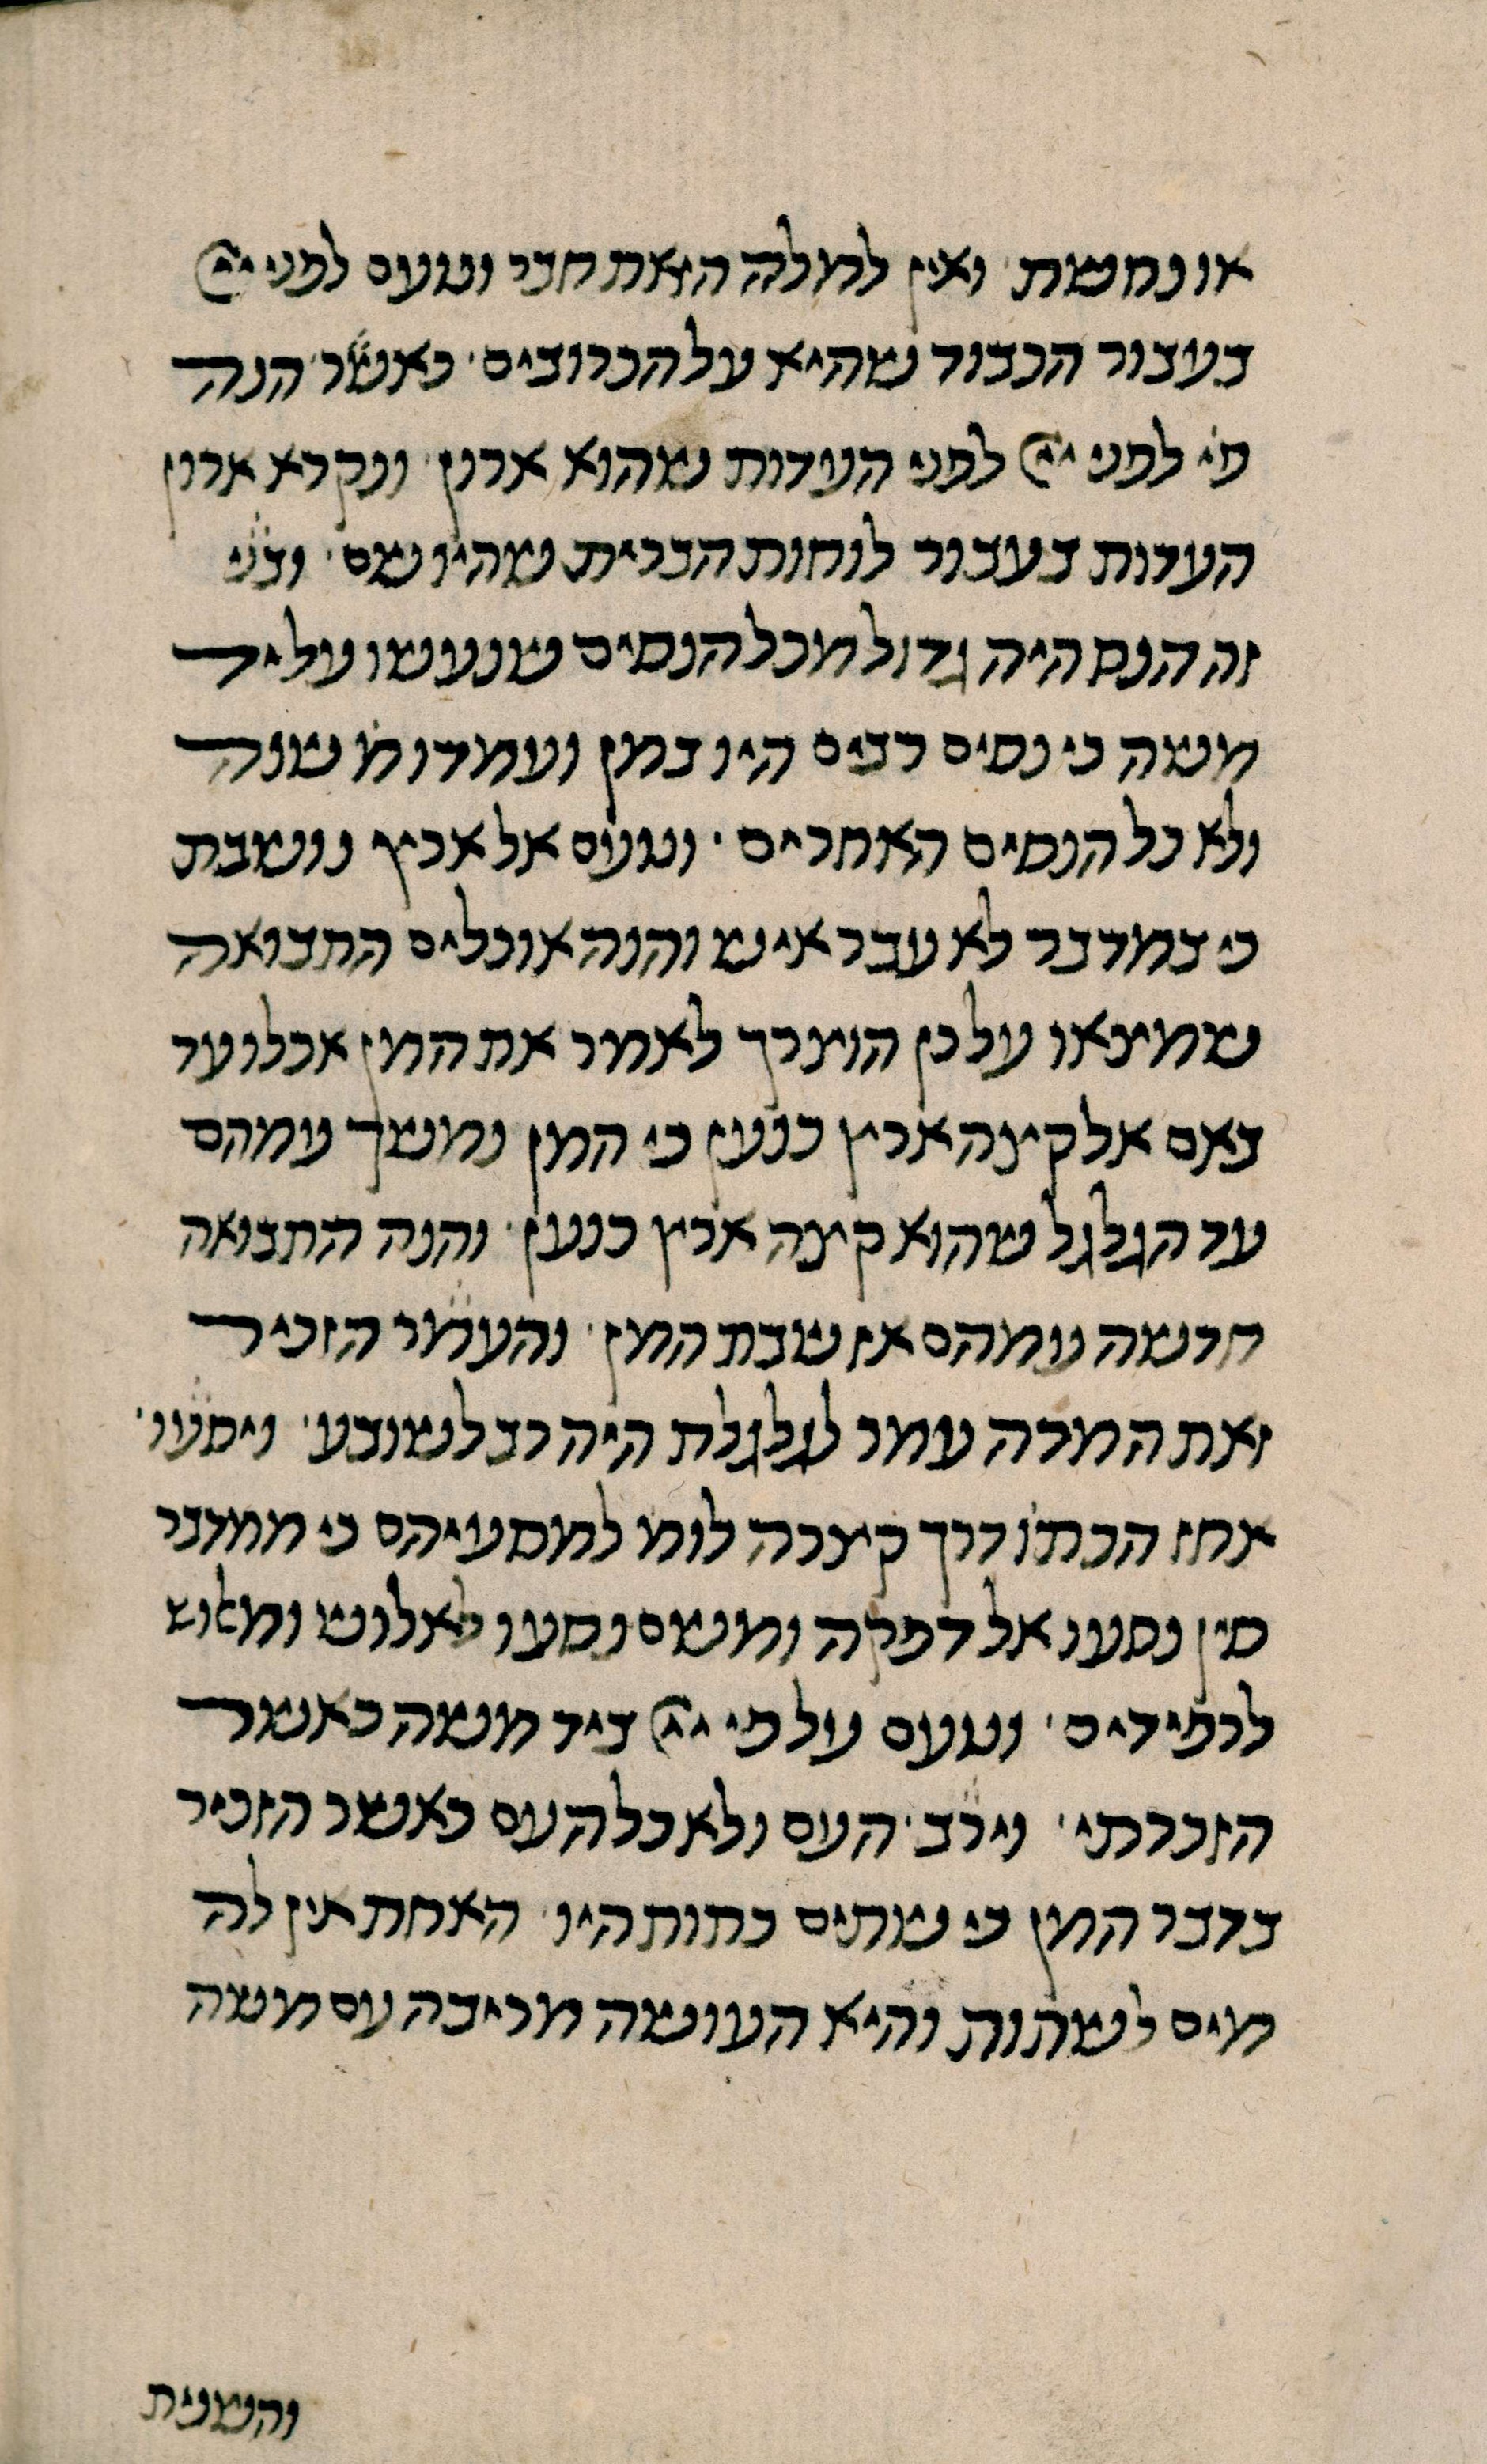 או נחשת ואין למלה הזאת חבר וטעם לפני יי
בעבור הכבוד שהיא על הכרובים כאשר הנה
פי לפני יי לפני העדות שהוא ארון ונקרא ארון
העדות בעבור לוחות הברית שהיו שם ובני
זה הנס היה גדול מכל הנסים שנעשו על יד
משה כי נסים רבים היו במן ועמדו מ שנה
ולא כל הנסים האחרים וטעם אל ארץ נושבת
כי במדבר לא עבר איש והנה אוכלים התבואה
שמצאו על כן הוצרך לאמר את המן אכלו עד
באם אל קצה ארץ כנען כי המן נמשך עמהם
עד הגלגל שהוא קצה ארץ כנען והנה התבואה
חדשה עמהם אז שבת המן והעמר הזכיר
זאת המדה עמר לגלגלת היה רב לשובע ויסעו
אחז הכתו דרך קצרה לומ למסעיהם כי ממדבר
סין נסעו אל דפקה ומשם נסעו לאלוש ומאלוש
לרפידים וטעם על פי יי ביד משה כאשר
הזכרתי וירב העם ולא כל העם כאשר הזכיר
בדבר המן כי שתים כתות היו האחת אין לה
מים לשתות והיא העושה מריבה עם משה
והשנית